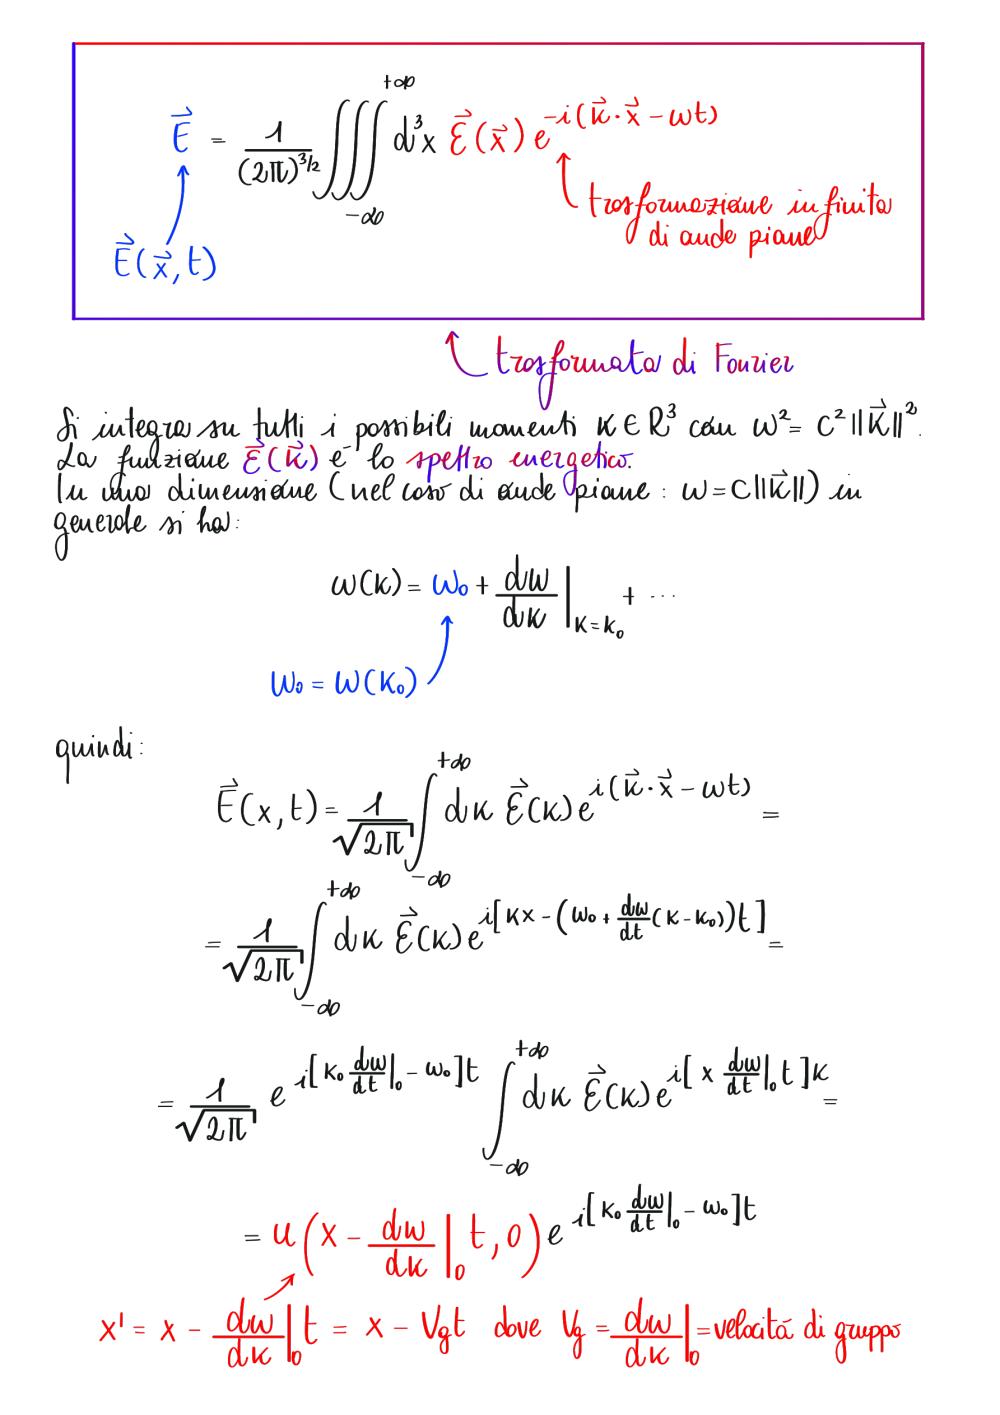 +∞
E⃗ = 1/(2π)^3/2 ∭ d³x ℰ⃗(x⃗) e^-i(k⃗·x⃗ - ωt)
-∞
trasformazione infinita
di onde piane
E⃗(x⃗,t)
trasformata di Fourier
Si integra su tutti i possibili momenti K∈R³ con ω² = c²||K⃗||².
La funzione ℰ⃗(K⃗) è lo spettro energetico.
In una dimensione (nel caso di onde piane : ω = C||K⃗||) in
generale si ha:
ω(K) = ω₀ + dω/dK |K=K₀ + ...
ω₀ = ω(K₀)
quindi:
E⃗(x,t) = 1/√2π ∫_-∞^+∞ dK ℰ⃗(K) e^i(K⃗·x⃗ - ωt) =
= 1/√2π ∫_-∞^+∞ dK ℰ⃗(K) e^i[Kx - (ω₀ + dω/dt (K-K₀))t] =
= 1/√2π e^i[K₀ dω/dt|₀ - ω₀]t ∫_-∞^+∞ dK ℰ⃗(K) e^i[x dω/dt|₀ t]K =
= u(x - dω/dK|₀ t, 0) e^i[K₀ dω/dt|₀ - ω₀]t
x' = x - dω/dK|₀ t = x - Vgt dove Vg = dω/dK|₀ = velocitá di gruppo